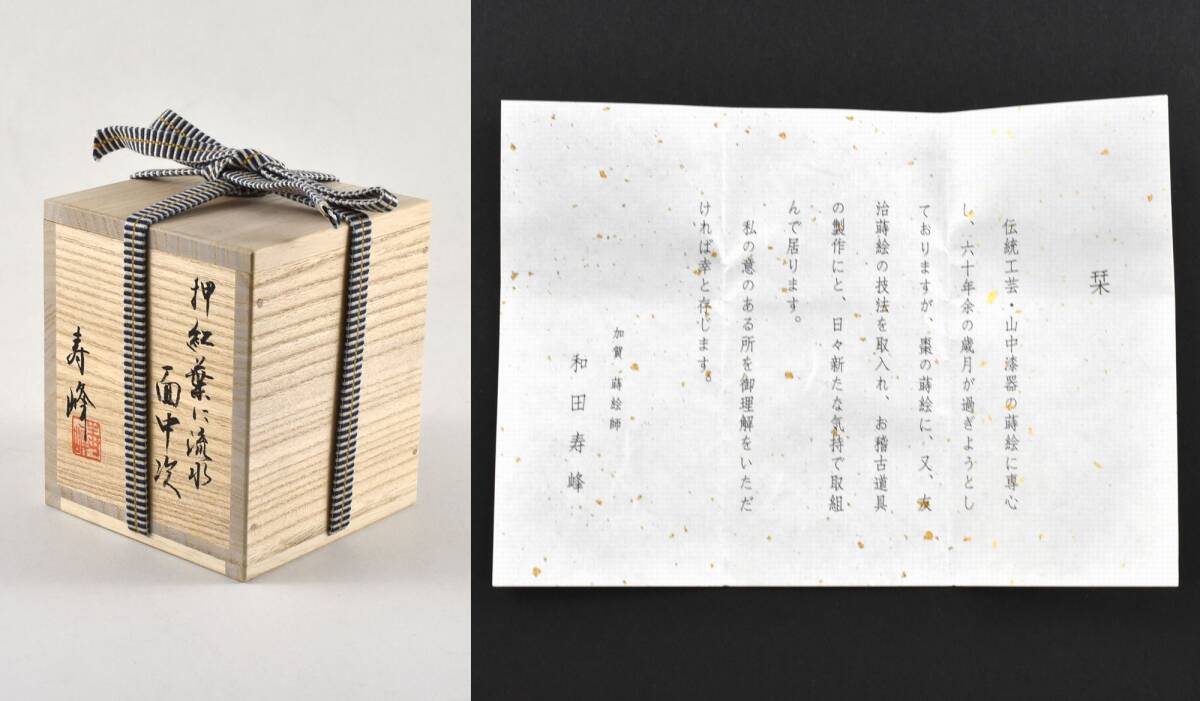 押紅葉に流水
面中次
寿峰
栞
伝統工芸・山中漆器の蒔絵に専心
し、六十年余の歳月が過ぎようとし
ておりますが、棗の蒔絵に、又、友
治蒔絵の技法を取入れ、お稽古道具
の製作にと、日々新たな気持で取組
んで居ります。
私の意のある所を御理解をいただ
ければ幸と存じます。
加賀 蒔絵師
和田寿峰